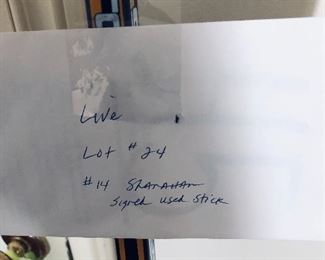 Live
Lot # 24
#14 Shanahan
Signed used stick